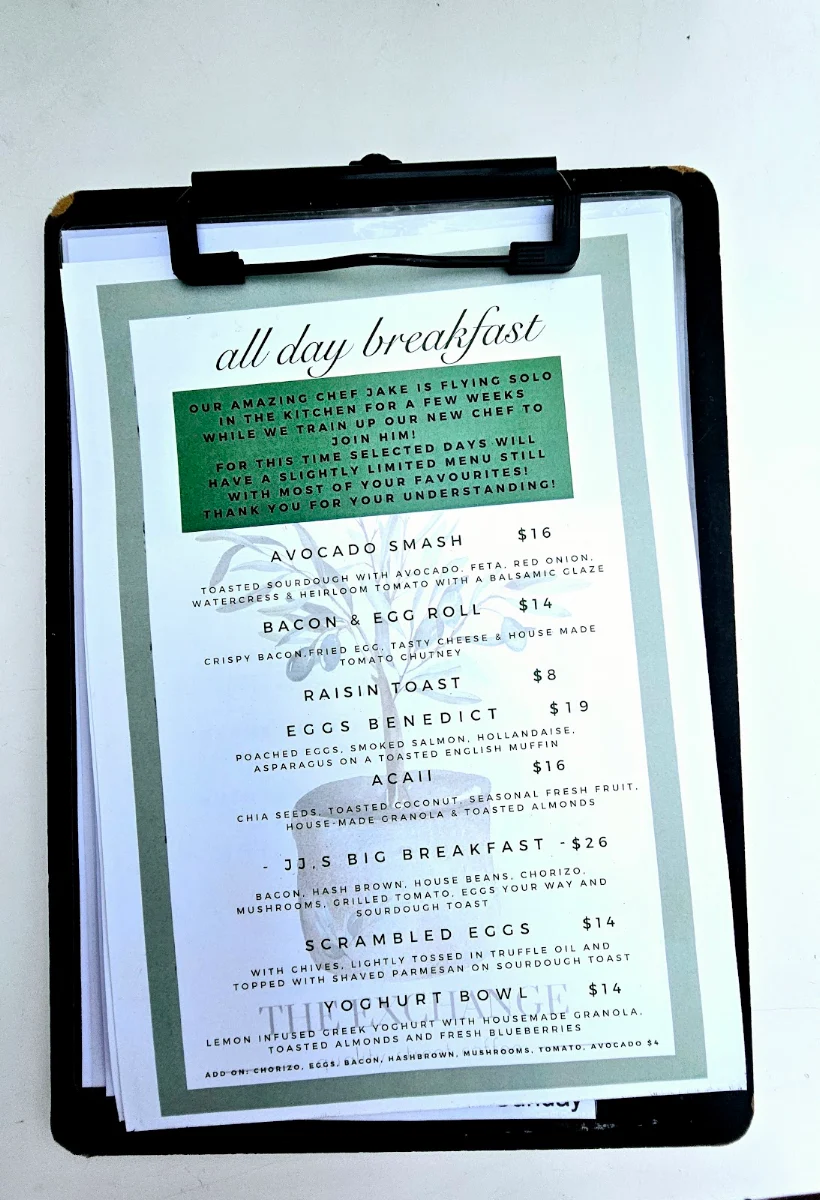 all day breakfast
OUR AMAZING CHEF JAKE IS FLYING SOLO
IN THE KITCHEN FOR A FEW WEEKS
WHILE WE TRAIN UP OUR NEW CHEF TO
JOIN HIM!
FOR THIS TIME SELECTED DAYS WILL
HAVE A SLIGHTLY LIMITED MENU STILL
WITH MOST OF YOUR FAVOURITES!
THANK YOU FOR YOUR UNDERSTANDING!
AVOCADO SMASH $16
TOASTED SOURDOUGH WITH AVOCADO, FETA, RED ONION,
WATERCRESS & HEIRLOOM TOMATO WITH A BALSAMIC GLAZE
BACON & EGG ROLL $14
CRISPY BACON,FRIED EGG, TASTY CHEESE & HOUSE MADE
TOMATO CHUTNEY
RAISIN TOAST $8
EGGS BENEDICT $19
POACHED EGGS, SMOKED SALMON, HOLLANDAISE,
ASPARAGUS ON A TOASTED ENGLISH MUFFIN
ACAII $16
CHIA SEEDS, TOASTED COCONUT, SEASONAL FRESH FRUIT,
HOUSE-MADE GRANOLA & TOASTED ALMONDS
- JJ,S BIG BREAKFAST -$26
BACON, HASH BROWN, HOUSE BEANS, CHORIZO,
MUSHROOMS, GRILLED TOMATO, EGGS YOUR WAY AND
SOURDOUGH TOAST
SCRAMBLED EGGS $14
WITH CHIVES, LIGHTLY TOSSED IN TRUFFLE OIL AND
TOPPED WITH SHAVED PARMESAN ON SOURDOUGH TOAST
YOGHURT BOWL $14
THE EXCHANGE
LEMON INFUSED GREEK YOGHURT WITH HOUSEMADE GRANOLA,
TOASTED ALMONDS AND FRESH BLUEBERRIES
ADD ON: CHORIZO, EGGS, BACON, HASHBROWN, MUSHROOMS, TOMATO, AVOCADO $4